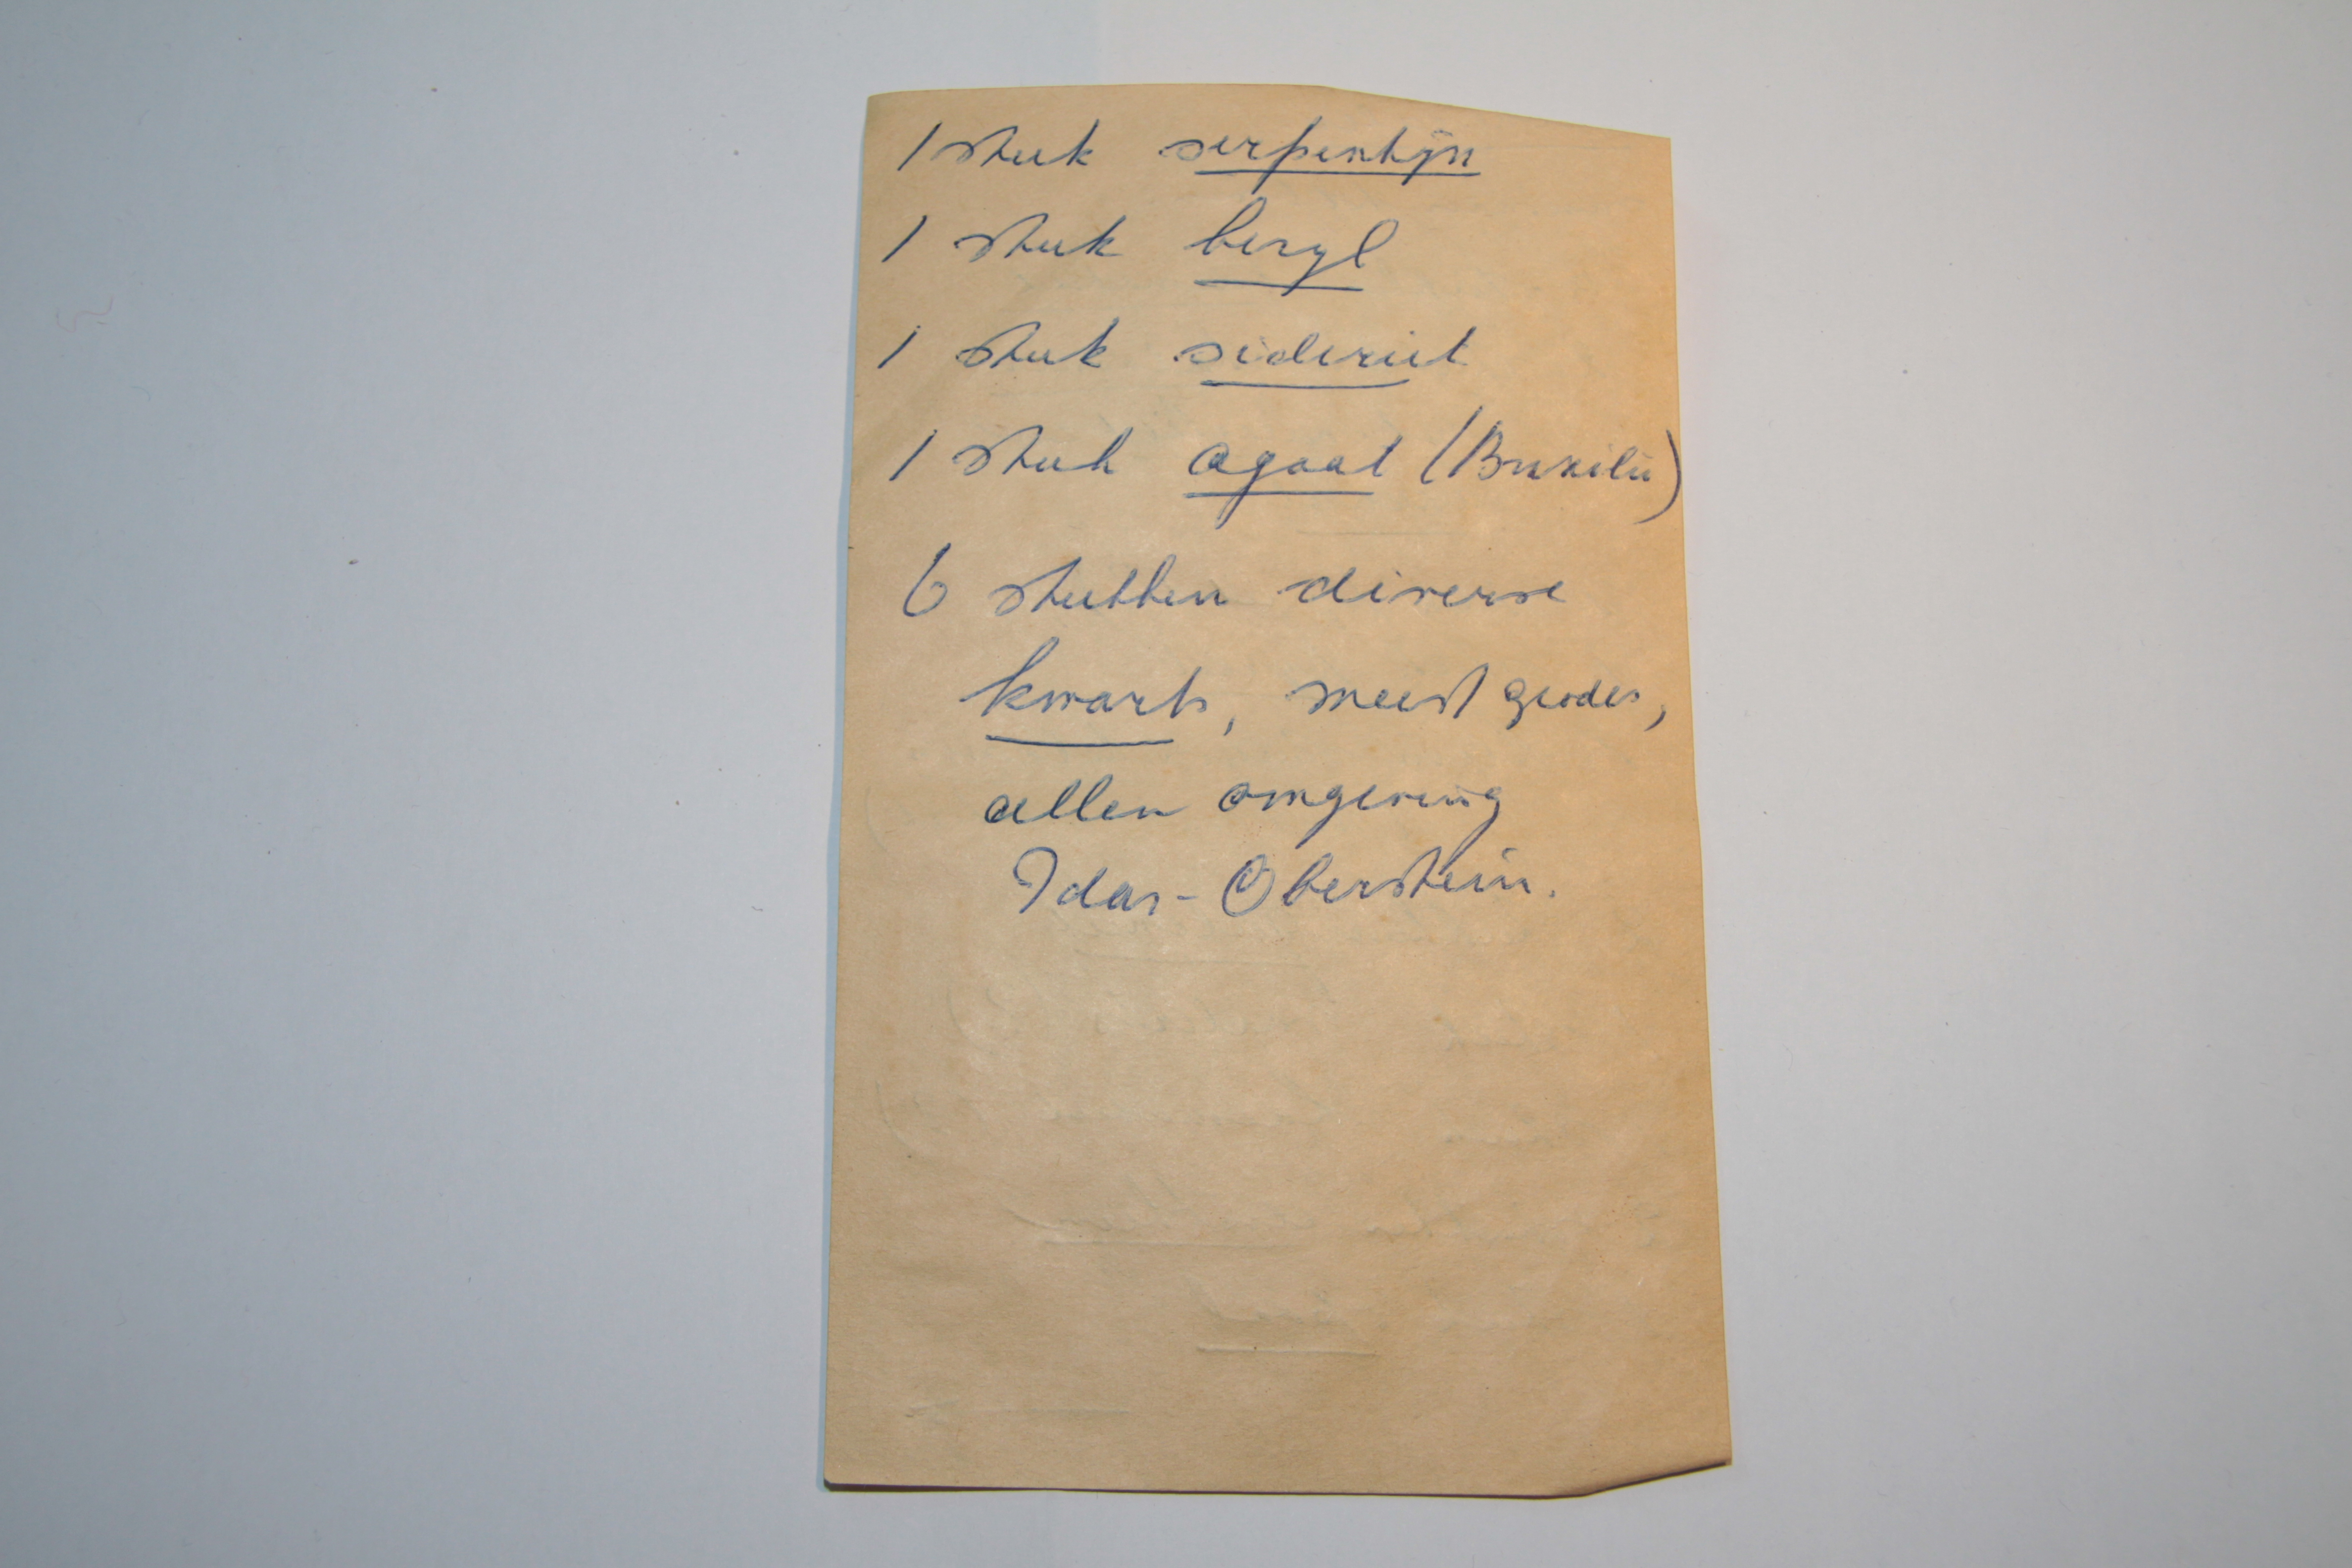 1 stuk serpentijn
1 stuk beryl
1 stuk sideriet
1 stuk agaat (Brazilië)
6 stukken diverse
kwarts, meest geodes,
allen omgeving
Idar-Oberstein.